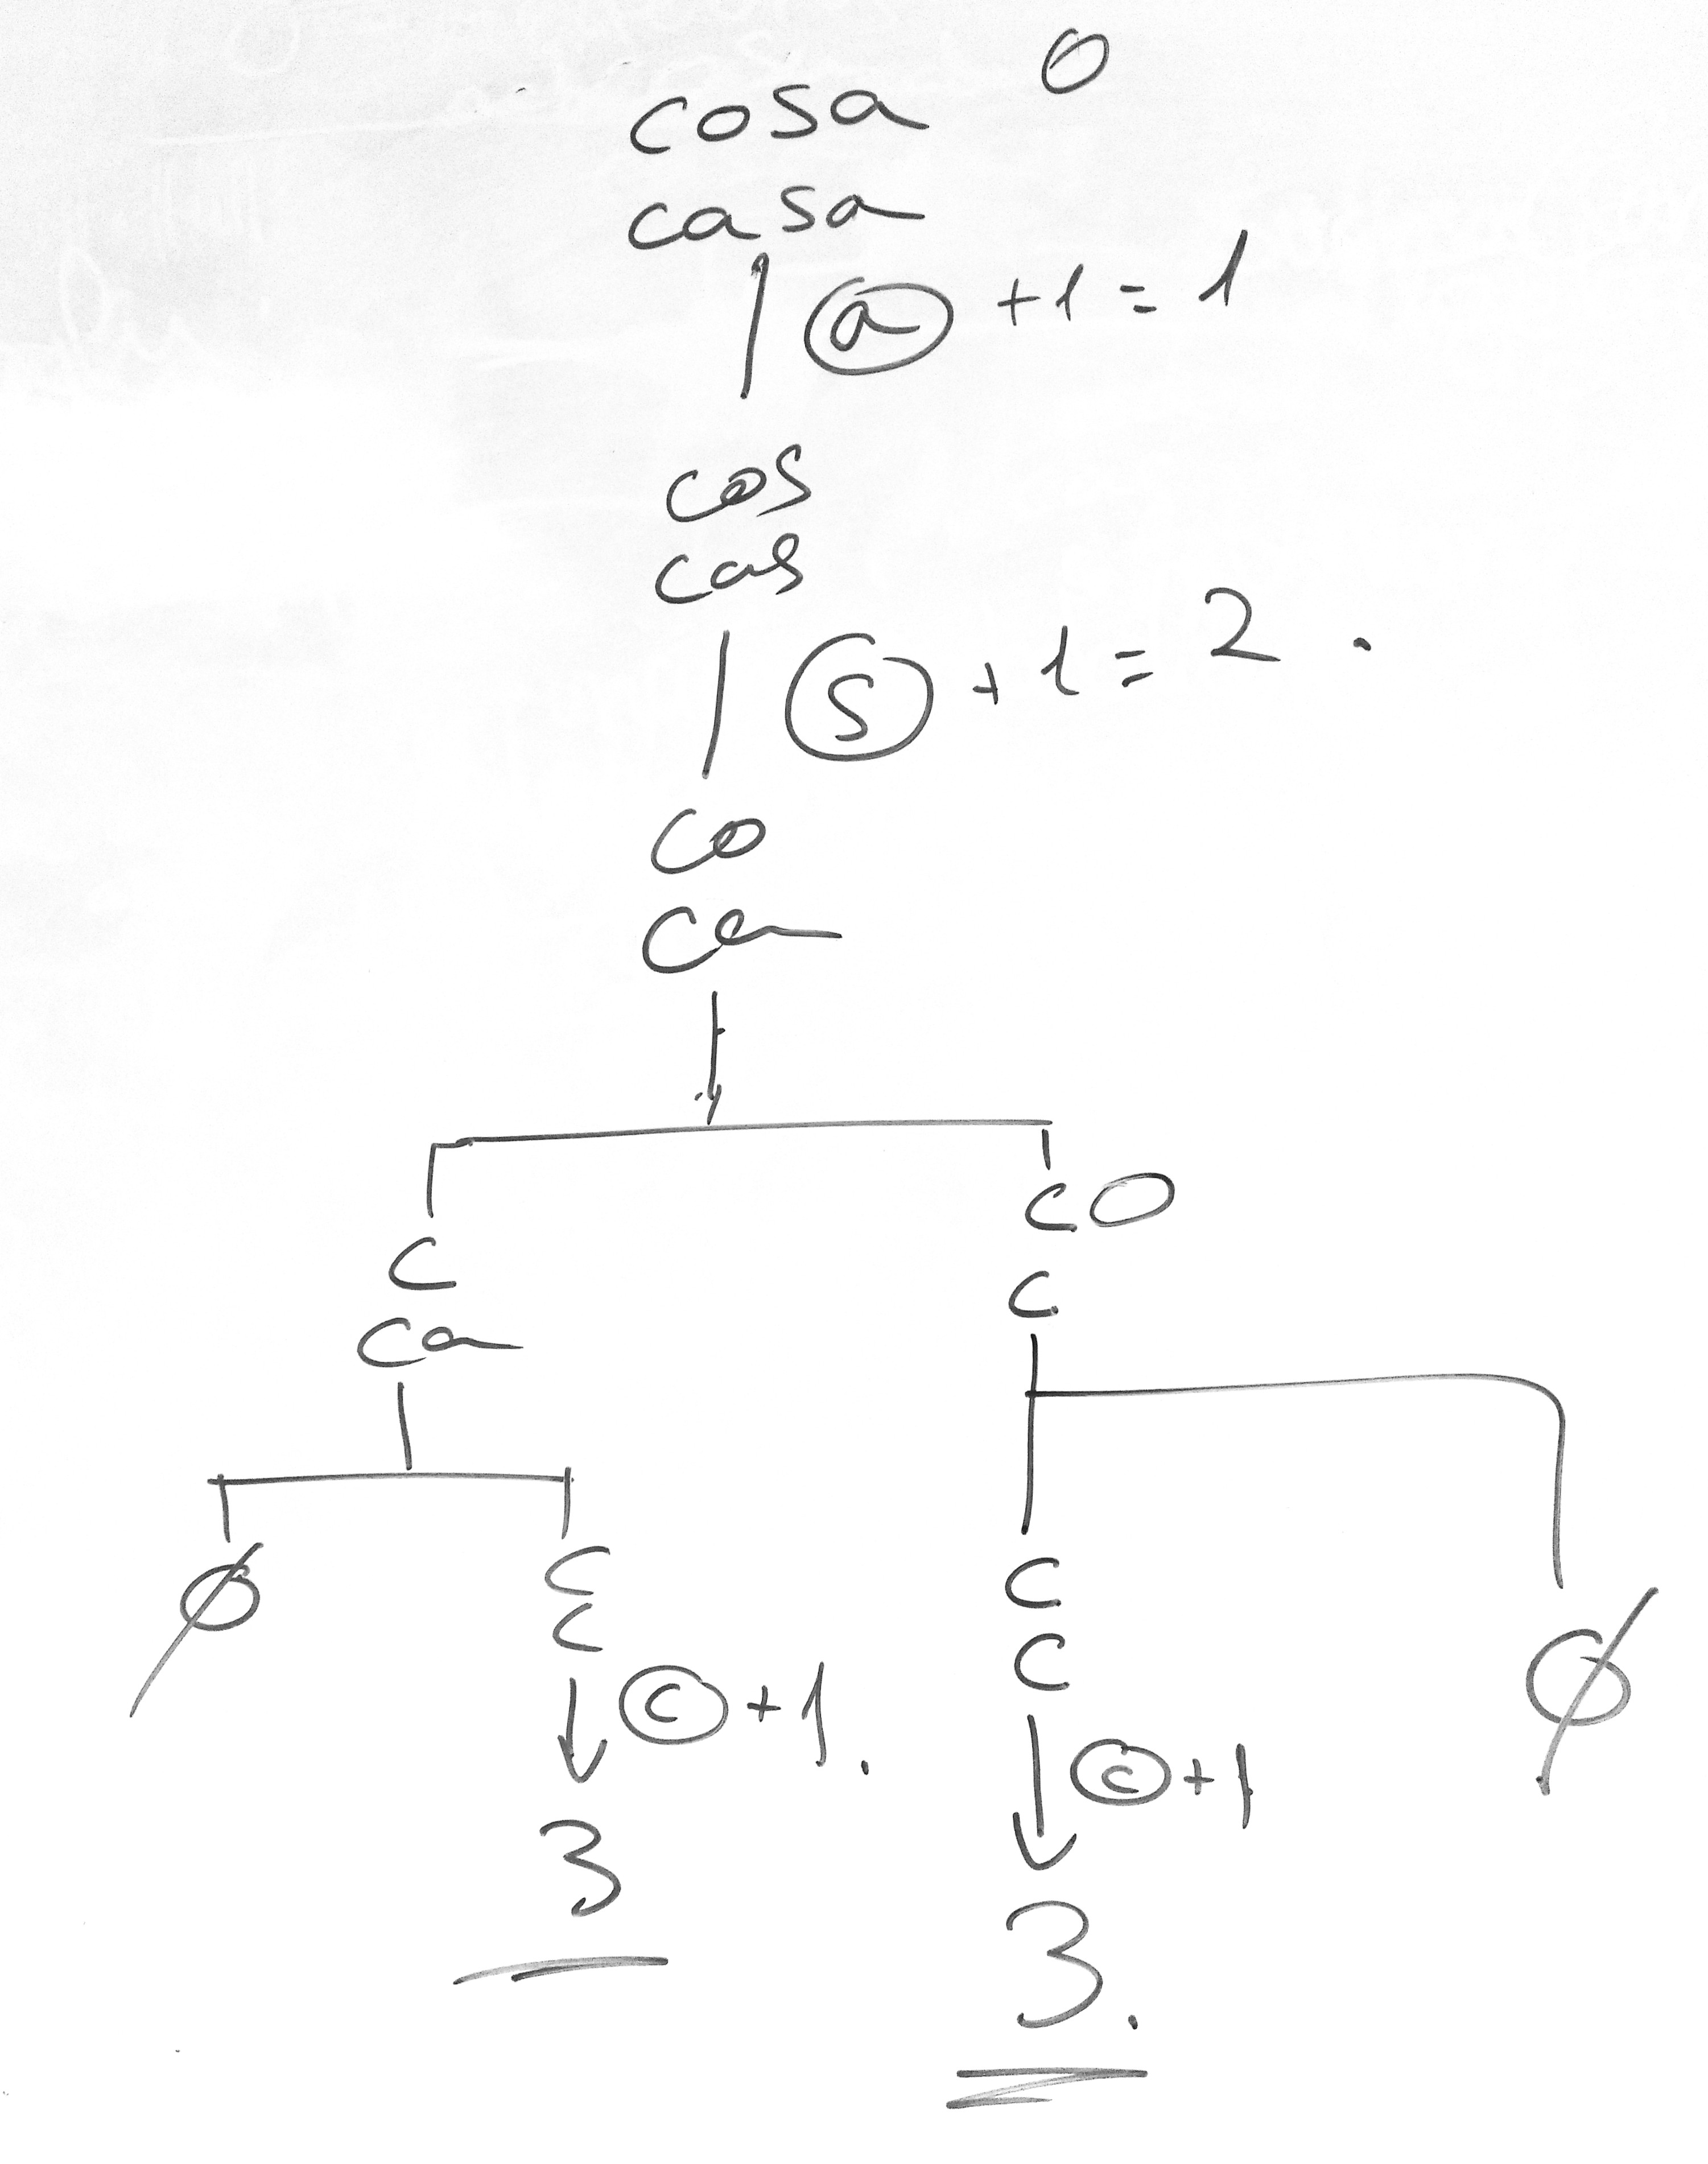 cosa 0
casa
a +1 = 1
cos
cas
s +1 = 2 .
co
ca
c
ca
co
c
Ø
c
c
c +1.
3
c
c
c +1
3.
Ø